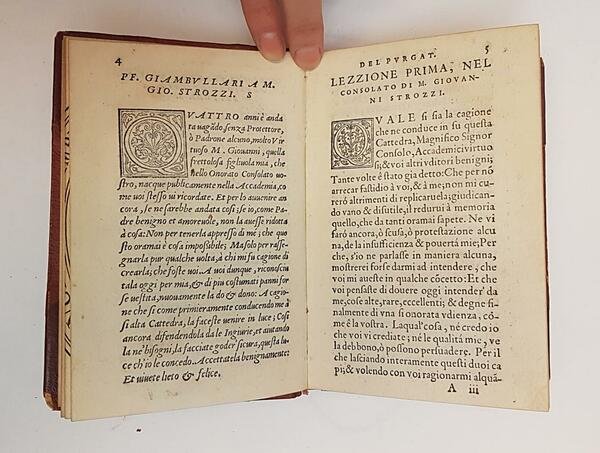 4
PF. GIAMBVLLARI A M.
GIO. STROZZI. S
QVATTRO anni è anda
ta uagādo senza Protettore,
ò Padrone alcuno, molto Vir
tuoso M. Giouanni, quella
frettolosa figliuola mia, che
nello Onorato Consolato uo
stro, nacque publicamente nella Accademia, co
me uoi stesso ui ricordate. Et per lo auuenire an
cora, se ne sarebbe andata cosi; se io, come Pa
dre benigno et amoreuole, non la auesse ridotta
à casa: Non per tenerla appresso di me; che que
sto oramai è cosa impossibile; Ma solo per rasse
gnarla pur qualche uolta, à chi mi fu cagione di
crearla; che foste uoi. A uoi dunque, riconosciu
tala oggi per mia, & di piu costumati panni for
se uestita, nuouamente la do & dono: A cagio
ne che si come primieramente conducendo me à
si alta Cattedra, la faceste uenire in luce; Cosi
ancora difendendola da le Ingiurie, et aiutando
la ne' bisogni, la facciate goder sicura, questa lu
ce ch'io le concedo. Accettatela benignamente:
Et uiuete lieto & felice.
DEL PVRGAT. 5
LEZZIONE PRIMA, NEL
CONSOLATO DI M. GIOVAN-
NI STROZZI.
QVALE si sia la cagione
che ne conduce in su questa
Cattedra, Magnifico Signor
Consolo, Accademici virtuo
si; & voi altri vditori benigni;
Tante volte è stato gia detto: Che per nō
arrecar fastidio à voi, & à me; non mi cu-
rerò altrimenti di replicaruela; giudican-
do vano & disutile, il redurui à memoria
quello, che da tanti oramai sapete. Ne vi
farò ancora, ò scusa, ò protestazione alcu
na, de la insufficienza & pouertà mie; Per
che, s'io ne parlasse in maniera alcuna,
mostrerei forse darmi ad intendere, che
voi mi aueste in qualche cōcetto: Et che
voi pensaste di douere oggi intender' da
me, cose alte, rare, eccellenti; & degne fi-
nalmente di vna si onorata vdienza, co-
me è la vostra. Laqual' cosa, né credo io
che voi vi crediate; né le qualità mie, ve
la debbono, ò possono persuadere. Per il
che lasciando interamente questi duoi ca
pi; & volendo con voi ragionarmi alquā-
A iii